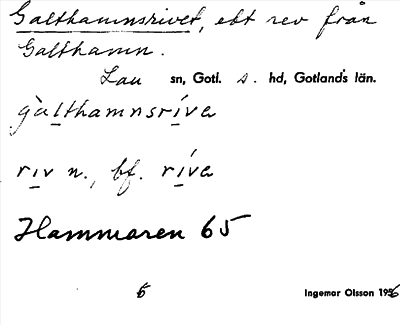 Galthamnsrivet, ett rev från
Galthamn.
Lau sn, Gotl. s. hd, Gotlands län.
gàlthamnsríva
rıv n., bf. ríva
Hammaren 65
5
Ingemar Olsson 1956